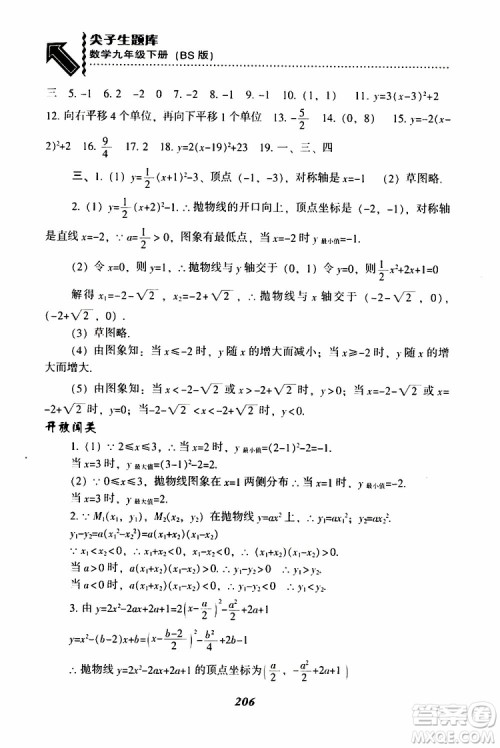 尖子生题库
数学九年级下册（BS 版）
三 5.-1 6. 2 -2 0 10.（1，1） 11. y=3(x-3)²+2
12. 向右平移 4 个单位，再向下平移 1 个单位 13. -5/2 15. y=-2(x-
2)²+2 16. 9/4 17. 2 18. y=(x-1)²+2 19. 一、三、四
三、1.（1）y=1/2(x+1)²-3、顶点（-1，-3），对称轴是 x=-1 （2）草图略.
2.（1）∵ a=1/2>0，∴ 抛物线的开口向上，顶点坐标（-2，-1），对称轴
是直线 x=-2，∵ a=1/2>0，图象有最低点，∴ 当 x=-2 时，y 最小值=-1.
（2）令 x=0，则 y=1，∴ 抛物线与 y 轴交于（0，1）令 y=0，则 1/2(x+2)²-1=0
解得 x₁=-2-√2，x₂=-2+√2，∴ 抛物线与 x 轴交于（-2-√2，0），
（-2+√2，0）.
（3）草图略.
（4）由图象知：当 x≤-2 时，y 随 x 的增大而减小. 当 x≥-2 时，y 随 x 的增
大而增大.
（5）由图象知：当 x<-2-√2 或 x>-2+√2 时，y>0；当 -2-√2<
x<-2+√2 时，y<0.
开放闯关
1.（1）∵ 2≤x≤3，∴ 抛物线图象在 x=1 右侧，∴ 当 x=2 时，y 最小值=(2-1)²-2=-1
当 x=3 时，y 最大值=(3-1)²-2=2.
（2）∵ 0≤x≤3，抛物线图象在 x=1 两侧分布，∴ 当 x=1 时，y 最小值=-2
当 x=3 时，y 最大值=2.
2. ∵ M₁(x₁，y₁)，M₂(x₂，y₂) 在抛物线 y=ax² 上，∴ y₁=ax₁²，y₂=ax₂².
y₁-y₂=a(x₁²-x₂²)=a(x₁+x₂)(x₁-x₂)
∵ x₁<x₂<0，∴ x₁-x₂<0，x₁+x₂<0，∴ (x₁+x₂)(x₁-x₂)>0
当 a>0 时，a(x₁+x₂)(x₁-x₂)>0 ∴ y₁-y₂>0 ∴ y₁>y₂.
当 a<0 时，a(x₁+x₂)(x₁-x₂)<0 ∴ y₁-y₂<0 ∴ y₁<y₂.
3. 由 y=2x²-2ax+2a+1=2(x-a/2)²-a²/2+2a+1
∴ 抛物线 的顶点坐标为
206